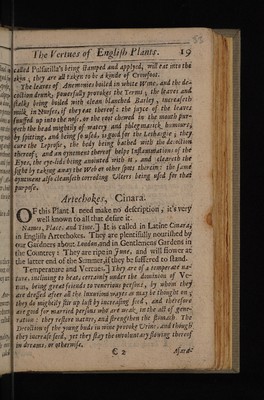 The Vertues of English Plants. 19
called Pulsatilla's being stamped and applyed, will eat into the
skin; they are all taken to be a kinde of Crowfoot.
The leaves of Anemonies boiled in white Wine, and the de-
coction drunk, powerfully provokes the Terms; the leaves and
stalks being boiled with clean blanched Barley, increaseth
milk in Nurses, if they eat thereof: the joyce of the leaves
snuffed up into the nose, or the root chewed in the mouth pur-
geth the head mightily of watery and phlegmatick humours,
by spitting, and being so used, is good for the Lethargie; they
cure the Leprosie, the body being bathed with the decoction
thereof; and an oyntment thereof helps Inflammations of the
Eyes, the eye-lids being anointed with it; and cleareth the
sight by taking away the Web or other spots therein: the same
oyntment also cleanseth corroding Ulcers being used for that
purpose.
Artechokes, Cinara.
OF this Plant I need make no description, it's very
well known to all that desire it.
Names, Place, and Time.] It is called in Latine Cinara,
in English Artechokes. They are plentifully nourished by
our Gardners about London, and in Gentlemens Gardens in
the Countrey: They are ripe in June, and will flower at
the latter end of the Summer, if they be suffered to stand.
Temperature and Vertues.] They are of a temperate na-
ture, inclining to heat, certainly under the dominion of Ve-
nus, being great friends to venerious persons, by whom they
are dressed after all the inventious wayes as may be thought on;
they do mightily stir up lust by increasing seed, and therefore
are good for married persons who are weak in the act of gene-
ration: they restore nature, and strengthen the stomach. The
Decoction of the young buds in wine provoke Urine: and though
they increase seed, yet they stay the involuntary flowing thereof
in dreams, or otherwise.
C 2